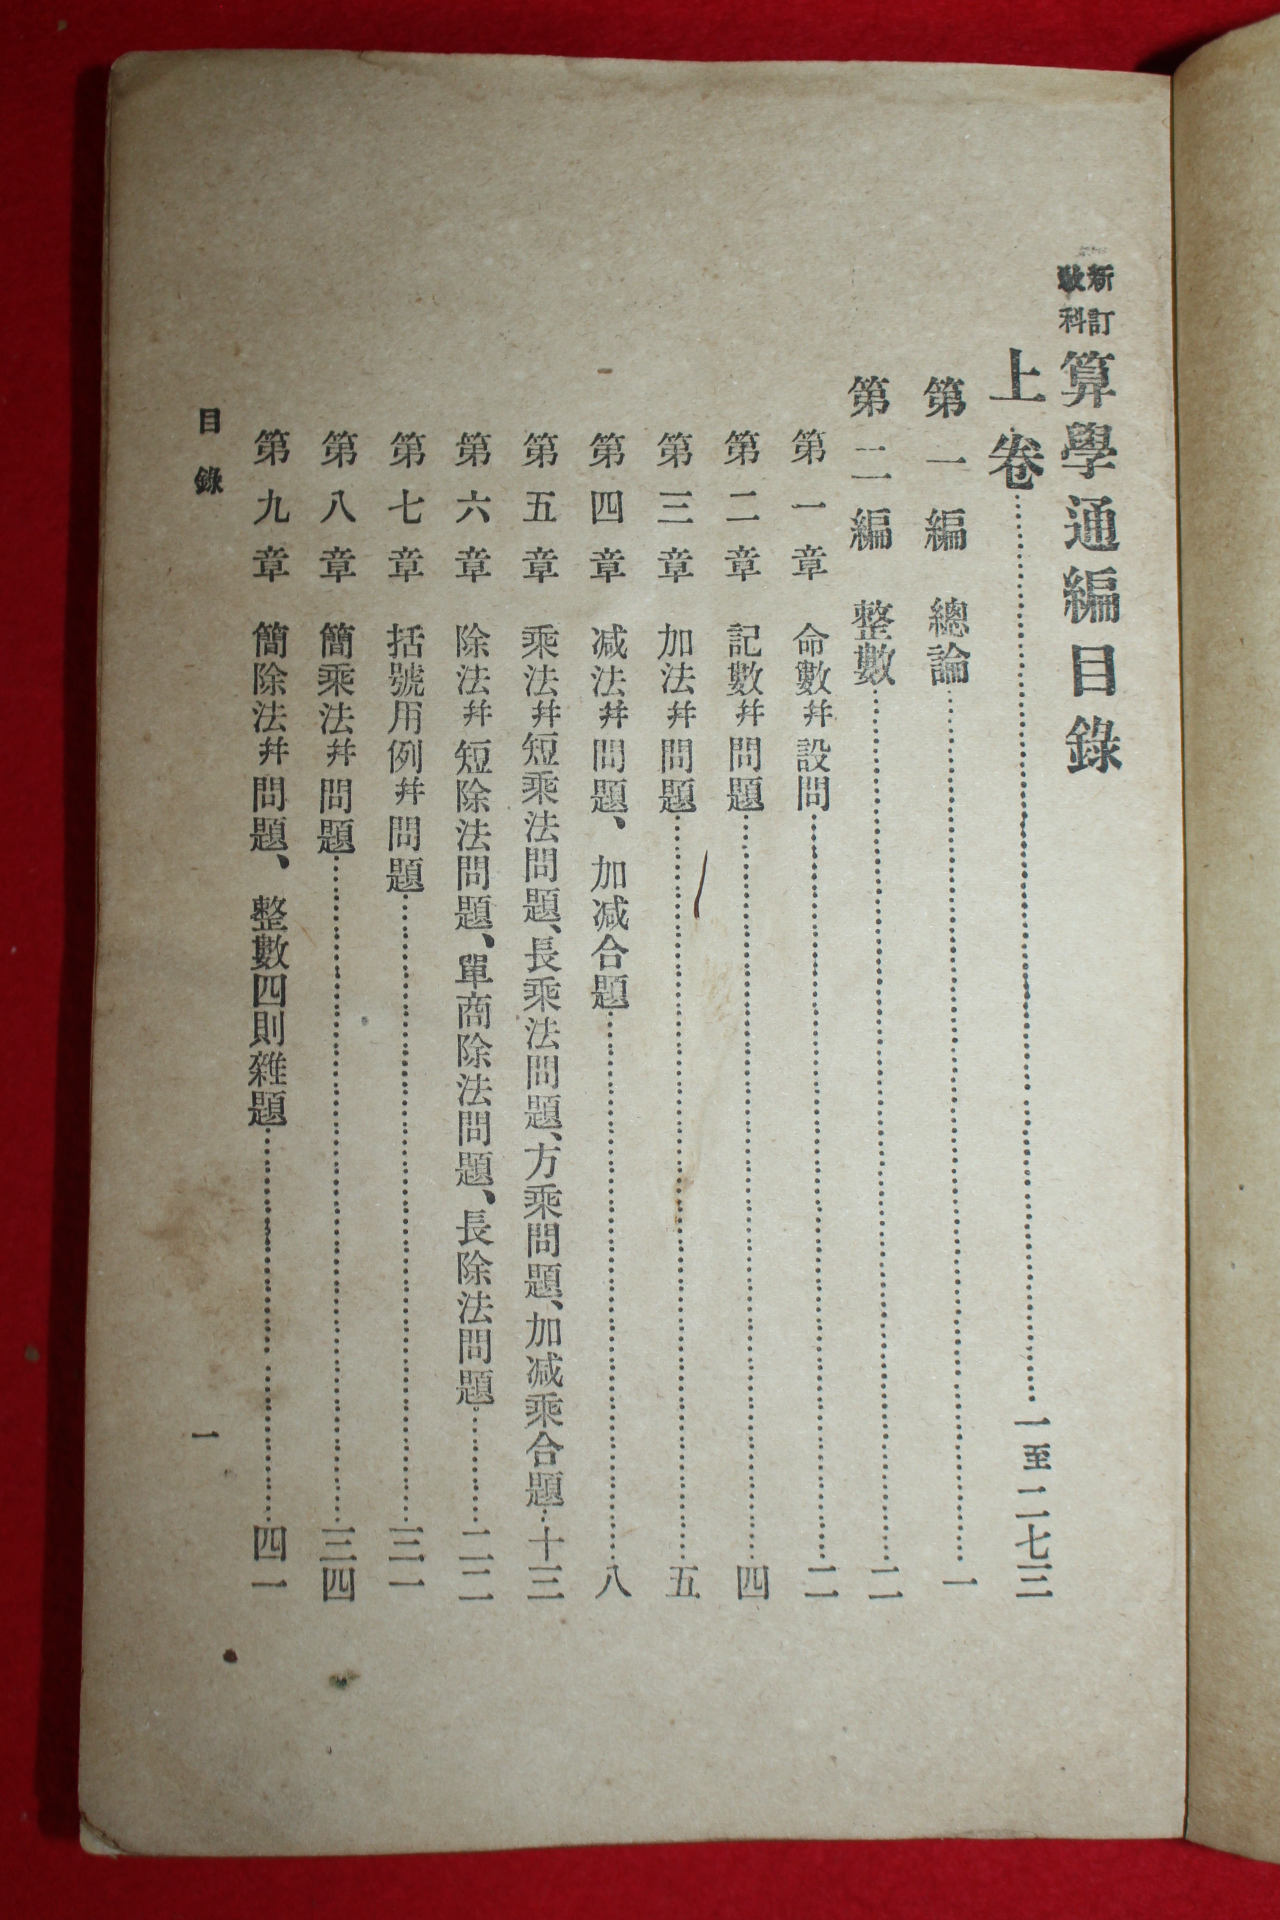 新訂
敎科
算學通編目錄
上卷……一至二七三
第一編　總論……一
第二編　整數……二
第一章　命數幷設問……二
第二章　記數幷問題……四
第三章　加法幷問題……五
第四章　减法幷問題、加减合題……八
第五章　乘法幷短乘法問題、長乘法問題、方乘問題、加减乘合題……十三
第六章　除法幷短除法問題、單商除法問題、長除法問題……二二
第七章　括號用例幷問題……三一
第八章　簡乘法幷問題……三四
第九章　簡除法幷問題、整數四則雜題……四一
目錄
一